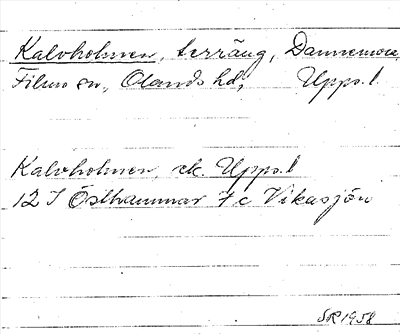 Kalvholmen, terräng, Dannemora,
Films sn., Olands hd, Upps.l.
Kalvholmen, ek. Upps.l
12 I Östhammar 7 c Vikasjön
SR 1958